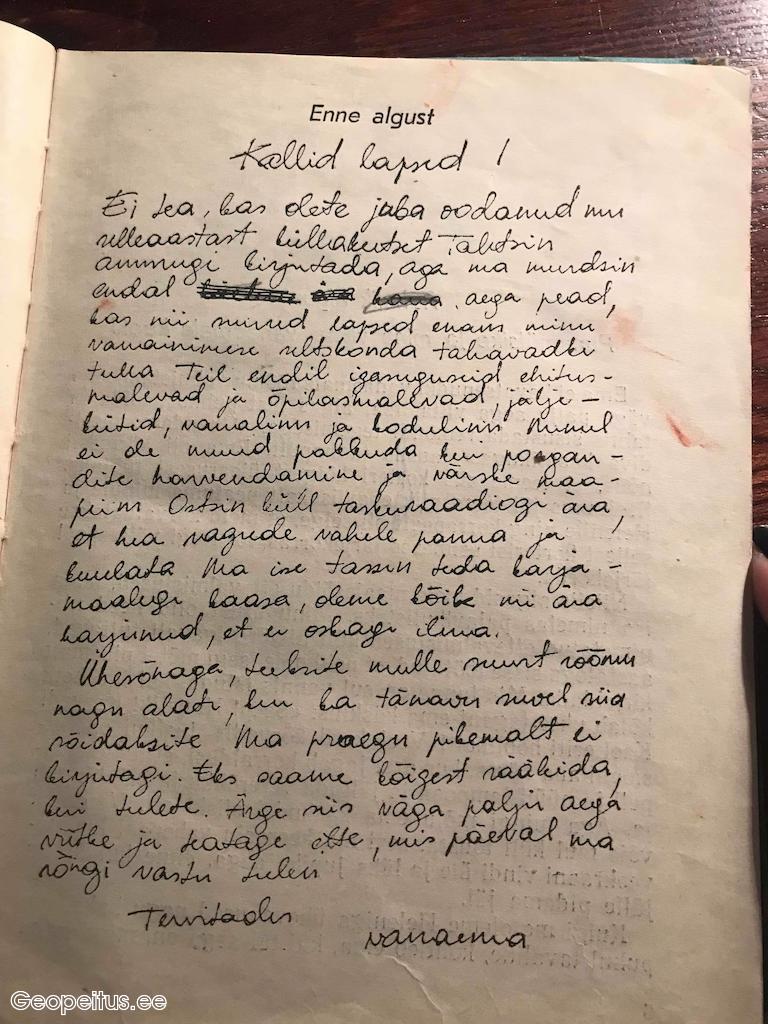 Enne algust
Kallid lapsed!
Ei tea, kas olete juba oodanud mu
selleaastast küllakutset Tahtsin
ammugi kirjutada, aga ma murdsin
endal aega pead,
kas nii suured lapsed enam minu
vanainimese seltskonda tahavadki
tulla Teil endil igasuguseid ehitus-
malevad ja õpilasmalevad, jälje-
kütid, vanalinn ja kodulinn Minul
ei ole muud pakkuda kui porgan-
dite harvendamine ja värske kaa-
piim Ostsin küll taskuraadiogi ära,
et hea vagude vahele panna ja
kuulata Ma ise tassin teda karja-
maalegi kaasa, oleme kõik nii ära
harjunud, et ei oskagi ilma.
Ühesõnaga, teeksite mulle suurt rõõmu
nagu alati, kui ka tänavu suvel siia
sõidaksite Ma praegu pikemalt ei
kirjutagi. Eks saame kõigest rääkida,
kui tulete. Ärge siis väga palju aega
viitke ja teatage ette, mis päeval ma
rongi vastu tulen
Tervitades
vanaema
Geopeitus.ee